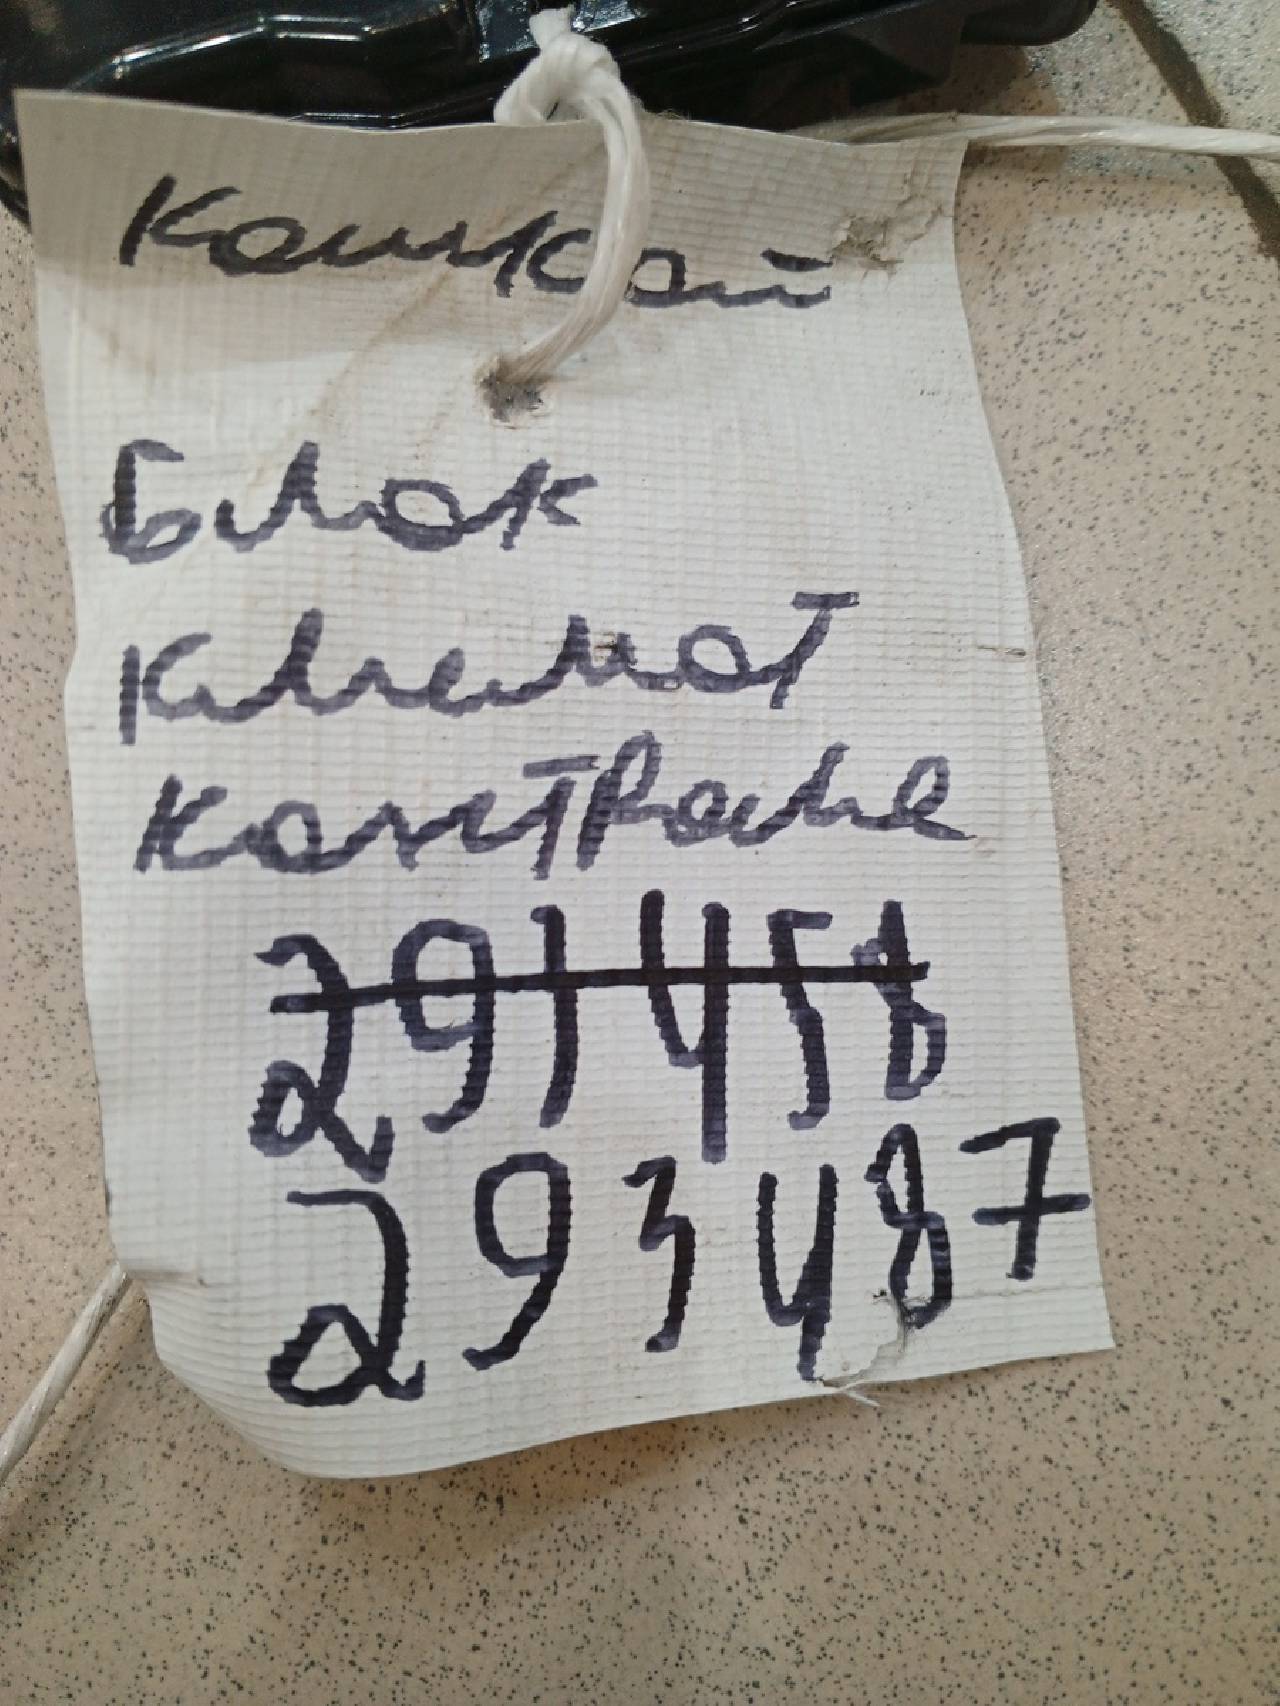 Кашкай
Блок
Климат
Контроле
291458
293487